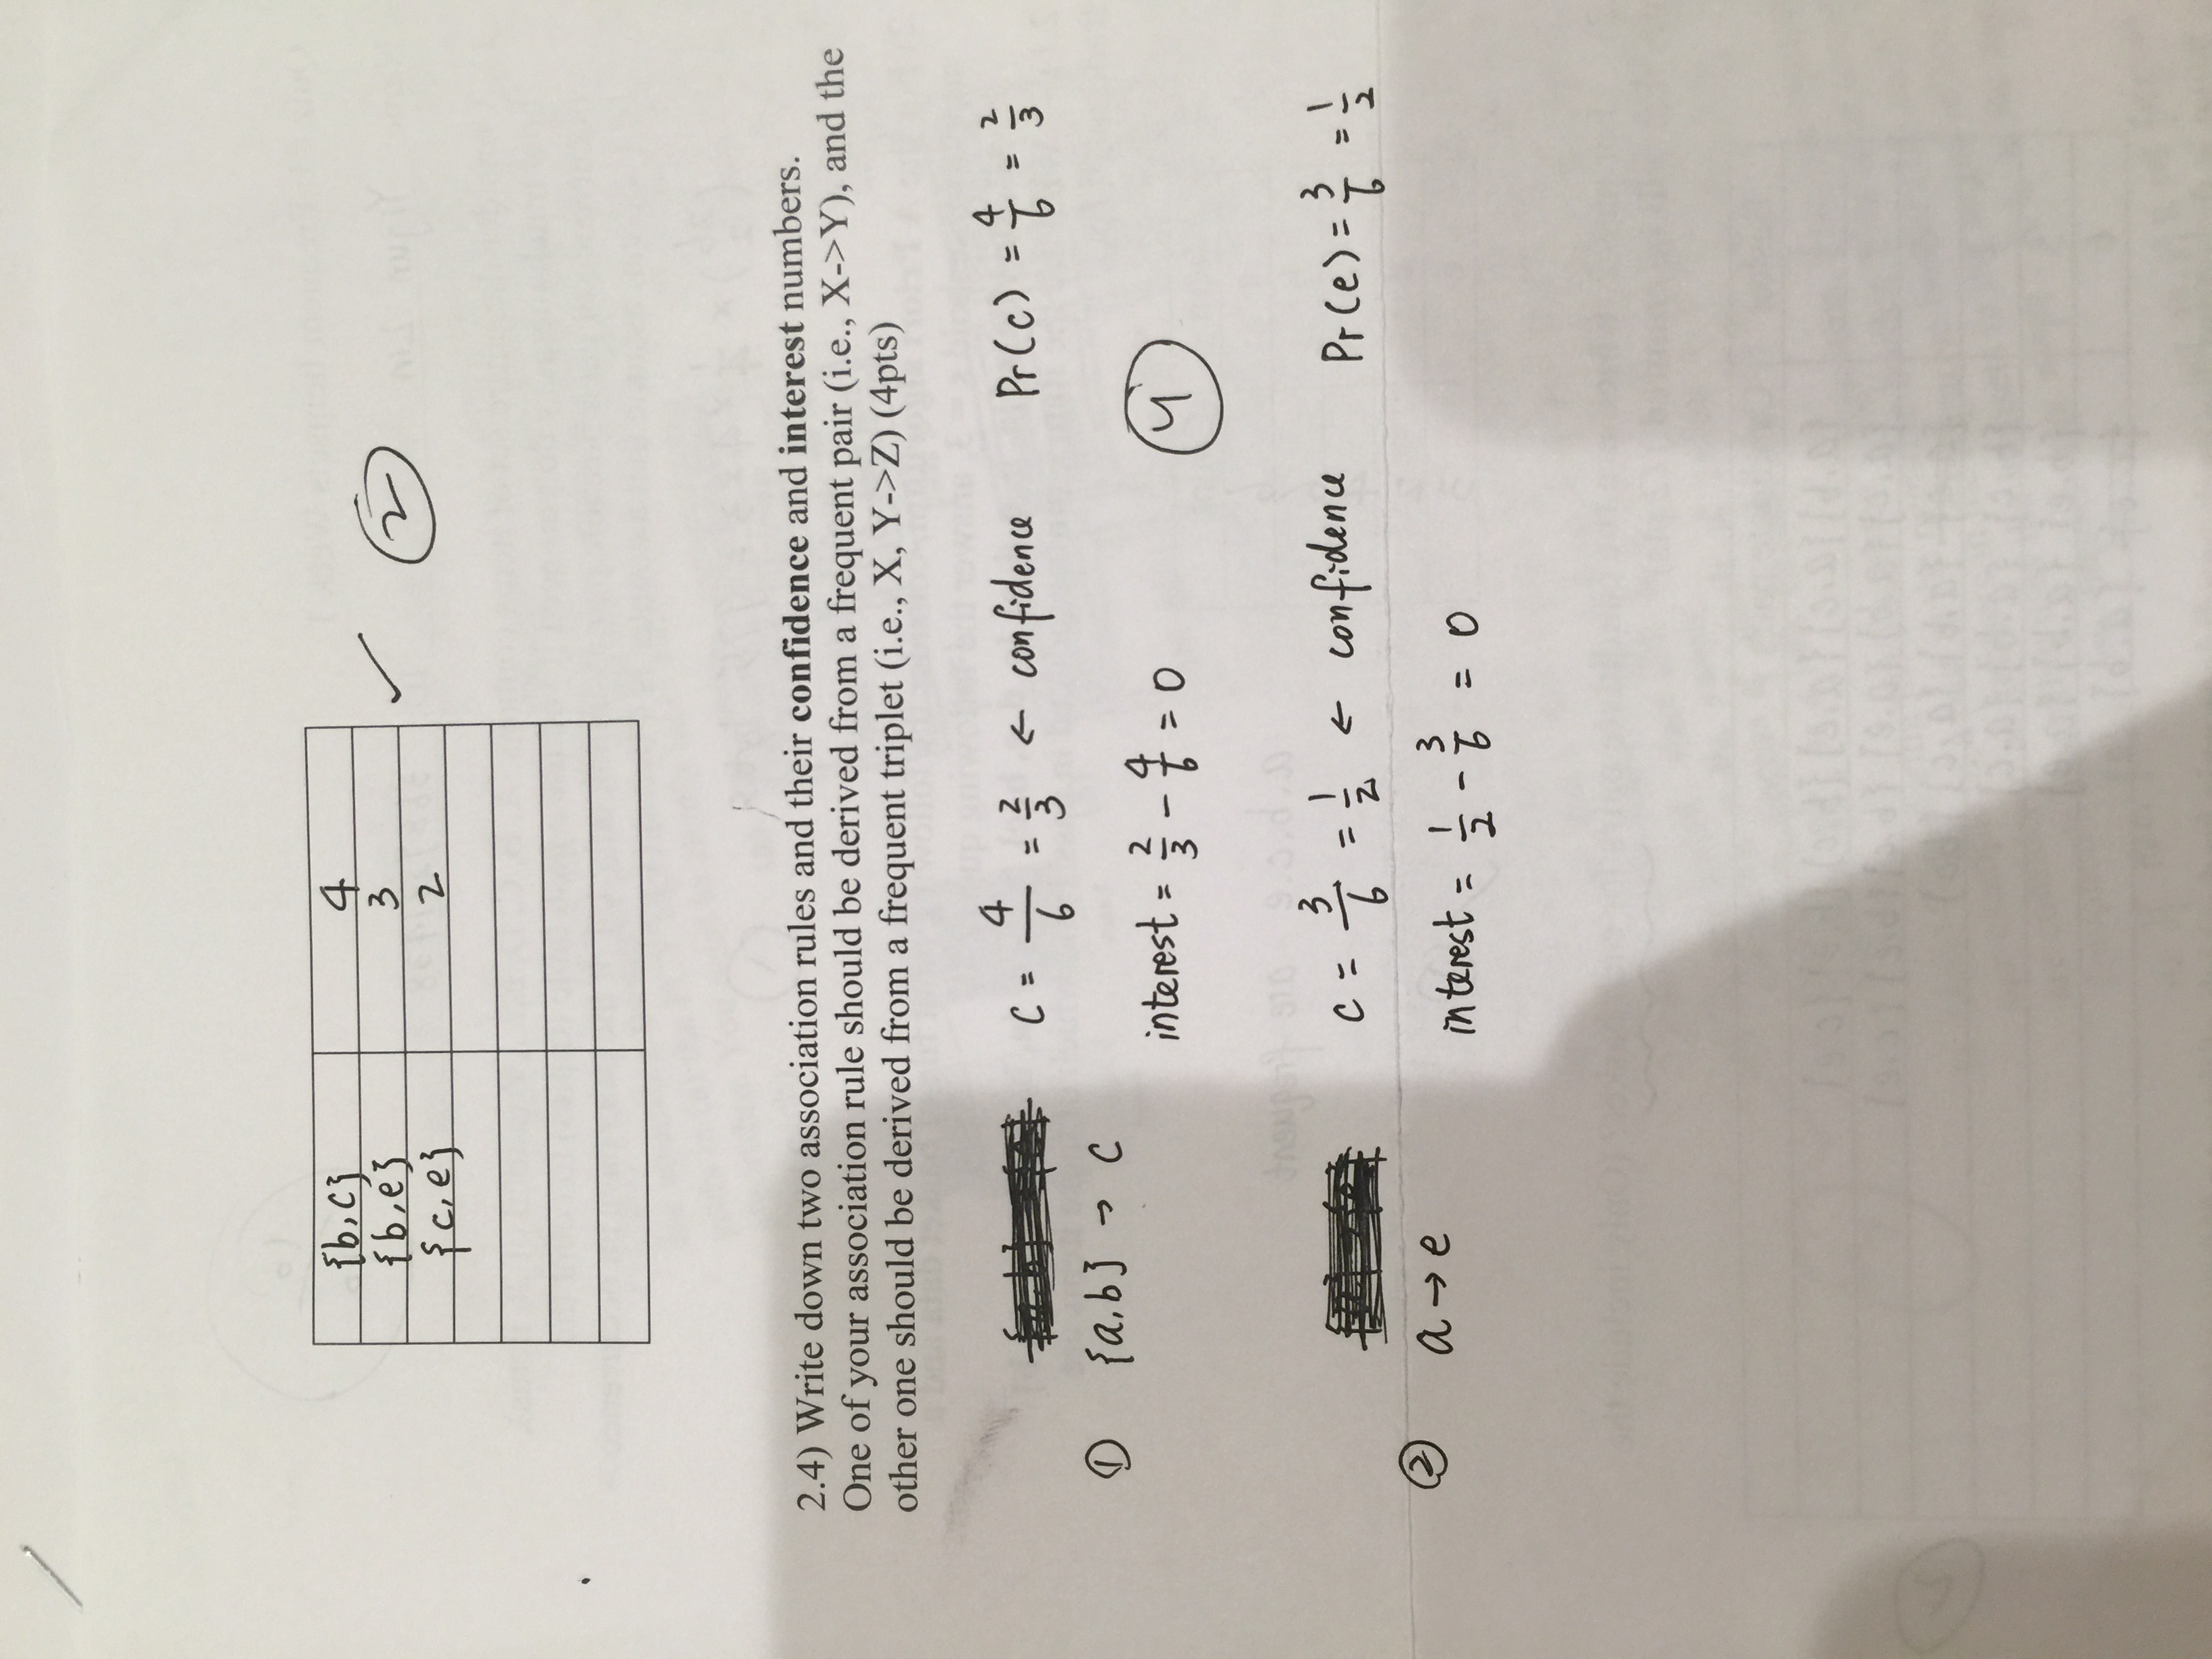 {b,c} 4
{b,e} 3
{c,e} 2
✓ 2
2.4) Write down two association rules and their confidence and interest numbers.
One of your association rule should be derived from a frequent pair (i.e., X->Y), and the
other one should be derived from a frequent triplet (i.e., X, Y->Z) (4pts)
C = 4/6 = 2/3 ← confidence Pr(c) = 4/6 = 2/3
① {a,b} → c
interest = 2/3 - 4/6 = 0
4
c = 3/6 = 1/2 ← confidence Pr(e) = 3/6 = 1/2
② a → e
interest = 1/2 - 3/6 = 0